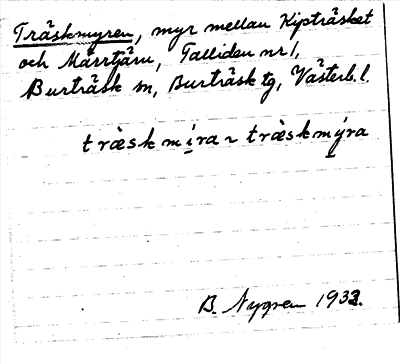 Träskmyren, myr mellan Kipträsket
och Márrtjärn, Talliden nr 1,
Burträsk sn, Burträsk tg, Västerb. l.
træ̀sk mi̱ra ~ træ̀skmy̱ra
B. Nygren 1933.